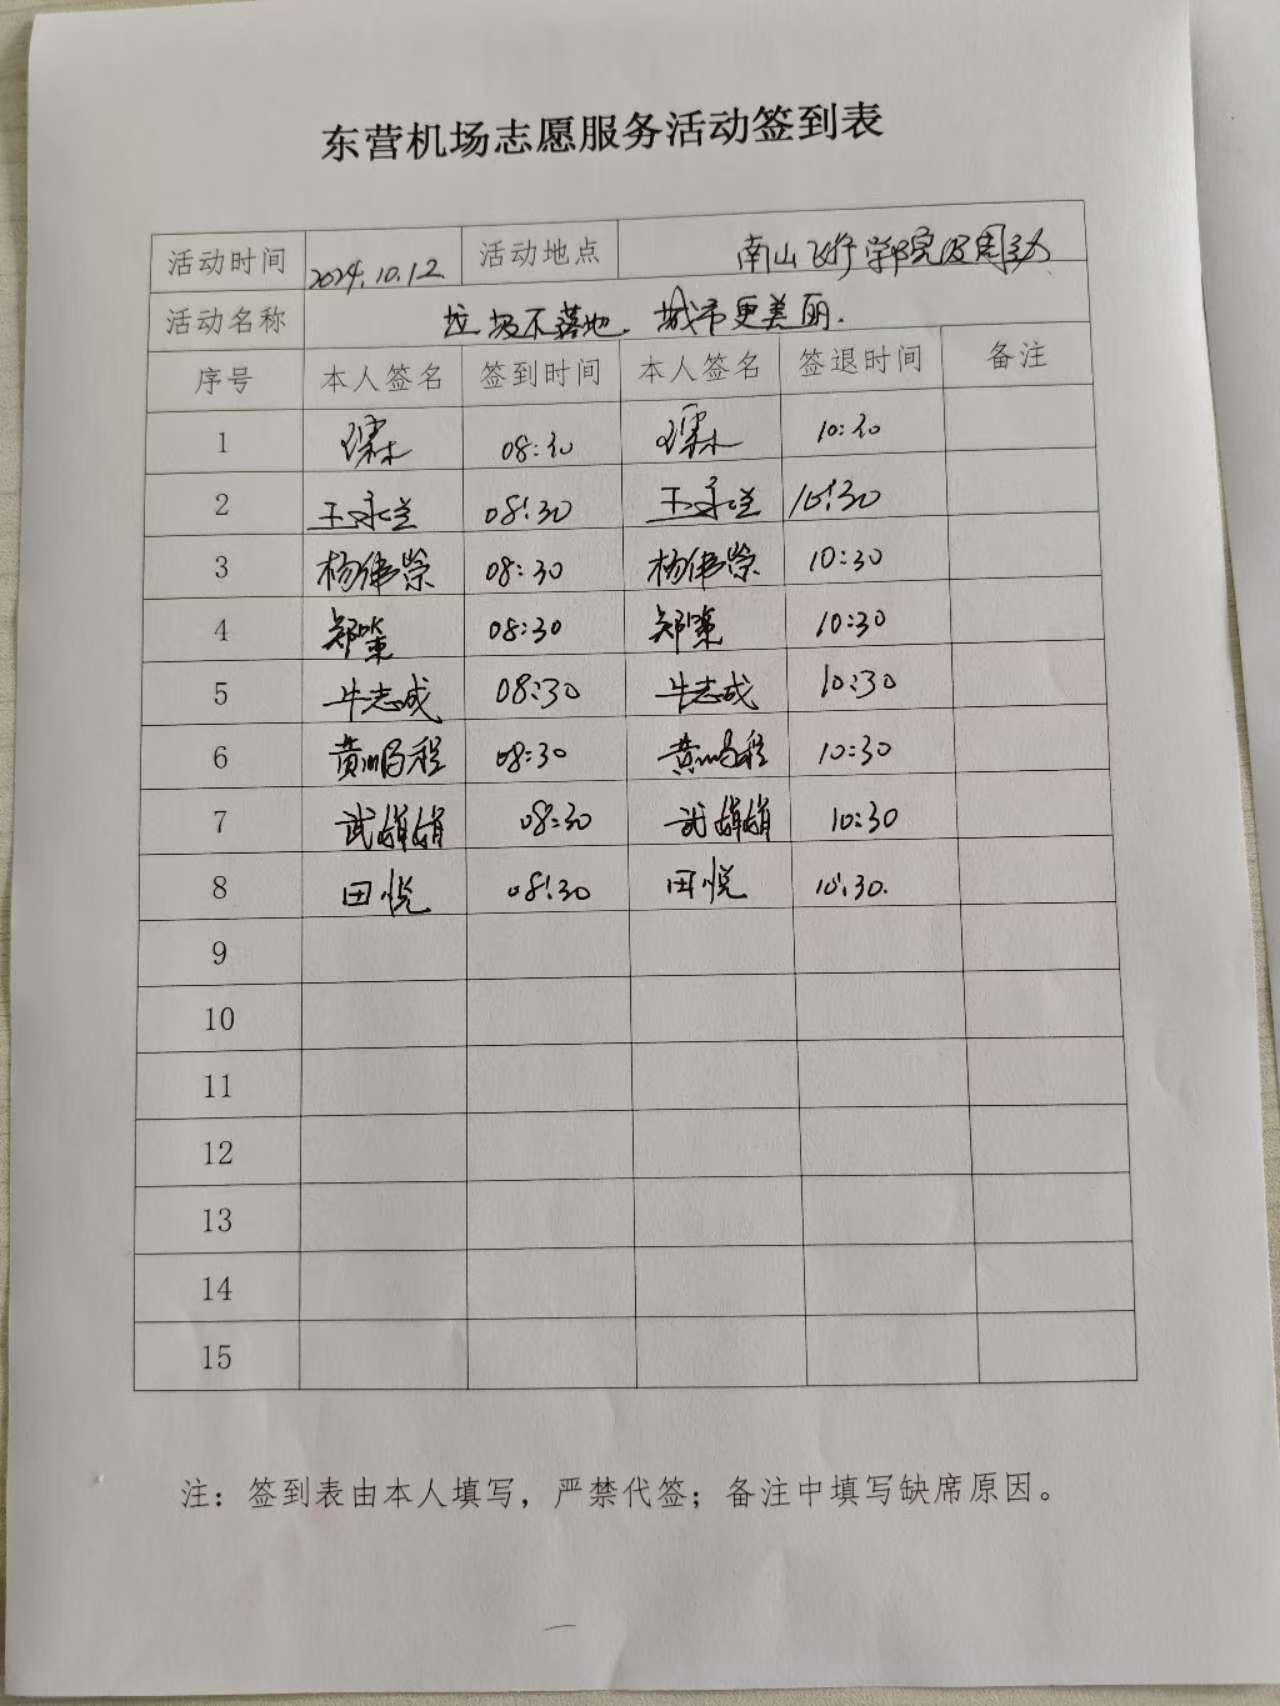 东营机场志愿服务活动签到表
活动时间 2024.10.12 活动地点 南山飞行学院及周边
活动名称 垃圾不落地.城市更美丽.
序号 本人签名 签到时间 本人签名 签退时间 备注
1 08:30 10:30
2 08:30 10:30
3 杨伟崇 08:30 杨伟崇 10:30
4 郑策 08:30 郑策 10:30
5 牛志成 08:30 牛志成 10:30
6 黄鹏程 08:30 黄鹏程 10:30
7 武娟娟 08:30 武娟娟 10:30
8 田悦 08:30 田悦 10:30.
9
10
11
12
13
14
15
注：签到表由本人填写，严禁代签；备注中填写缺席原因。